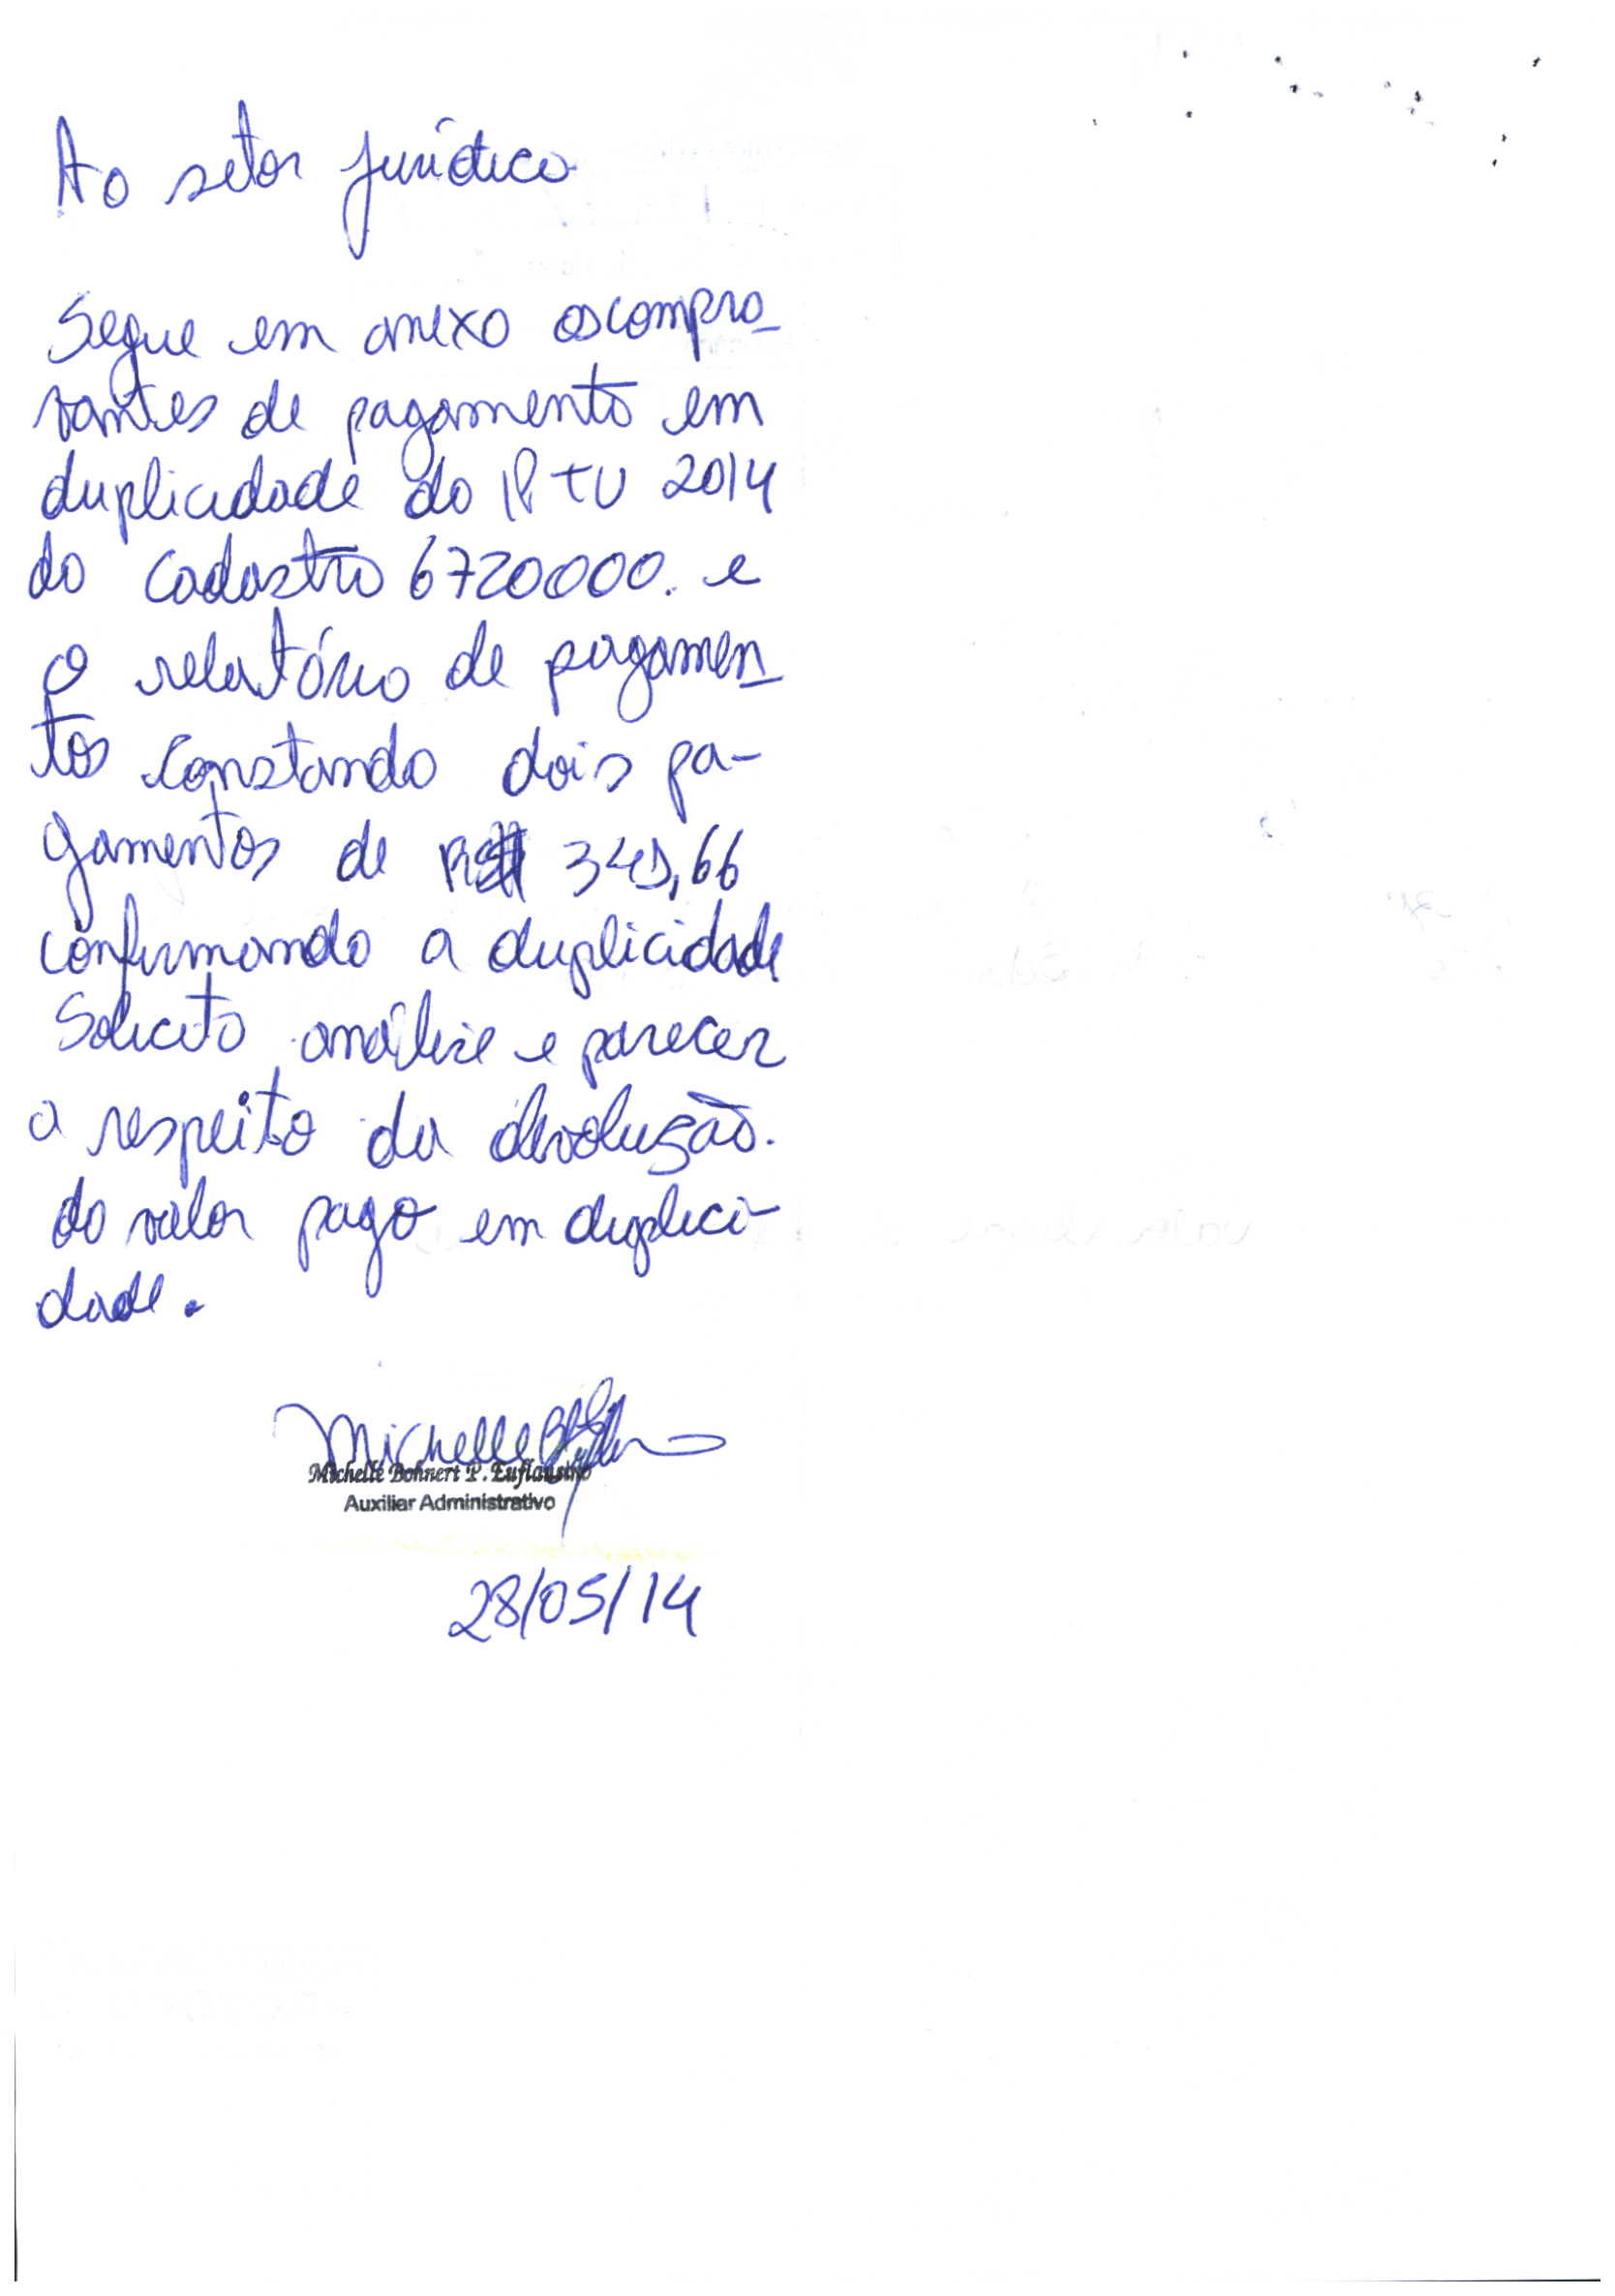 Ao setor jurídico
Segue em anexo os compro-
vantes de pagamento em
duplicidade do IPTU 2014
do cadastro 6720000. e
o relatório de pagamen-
tos constando dois pa-
gamentos de R$ 341,66
confirmando a duplicidade
Solicito análise e parecer
a respeito da devolução.
do valor pago em duplici-
dade.
Michelle
Michelle Bohnert P.
Auxiliar Administrativo
28/05/14